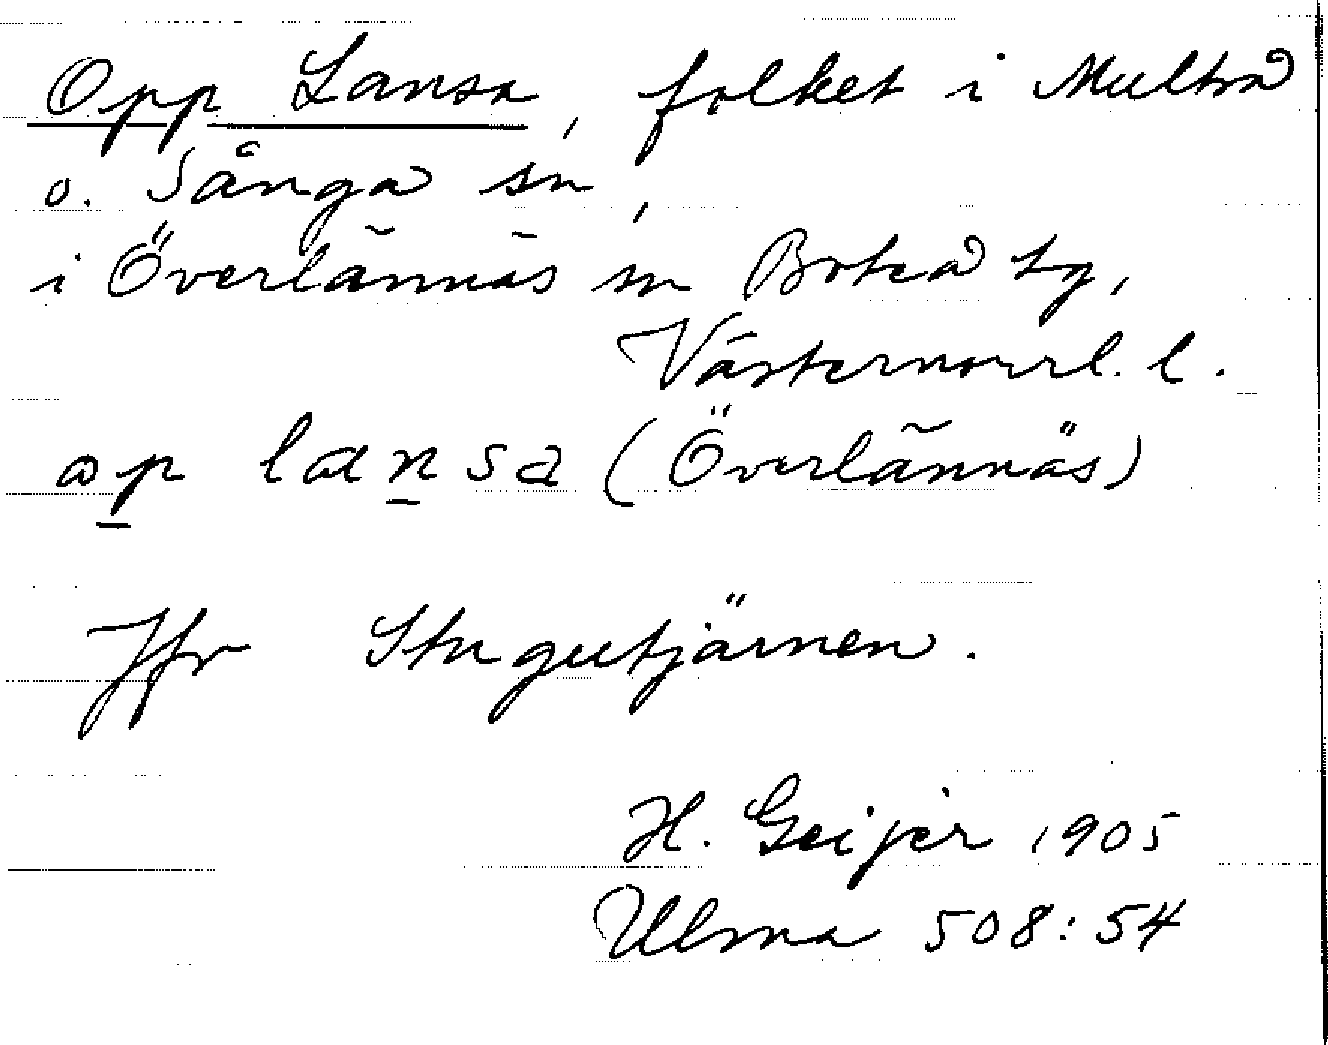 Opp Lansa, folket i Multrå
o. Sånga sn,
i Överlännäs sn Boteå tg,
Västernorrl. l.
op lansa (Överlännäs)
Jfr Stugutjärnen.
H. Geijer 1905
Ulma 508:54